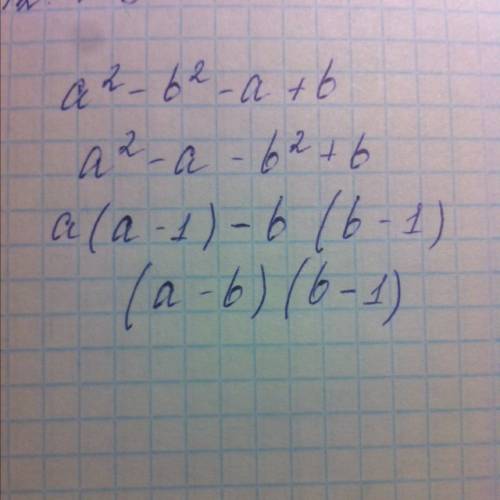 a² - b² - a + b
a² - a - b² + b
a(a - 1) - b (b - 1)
(a - b)(b - 1)